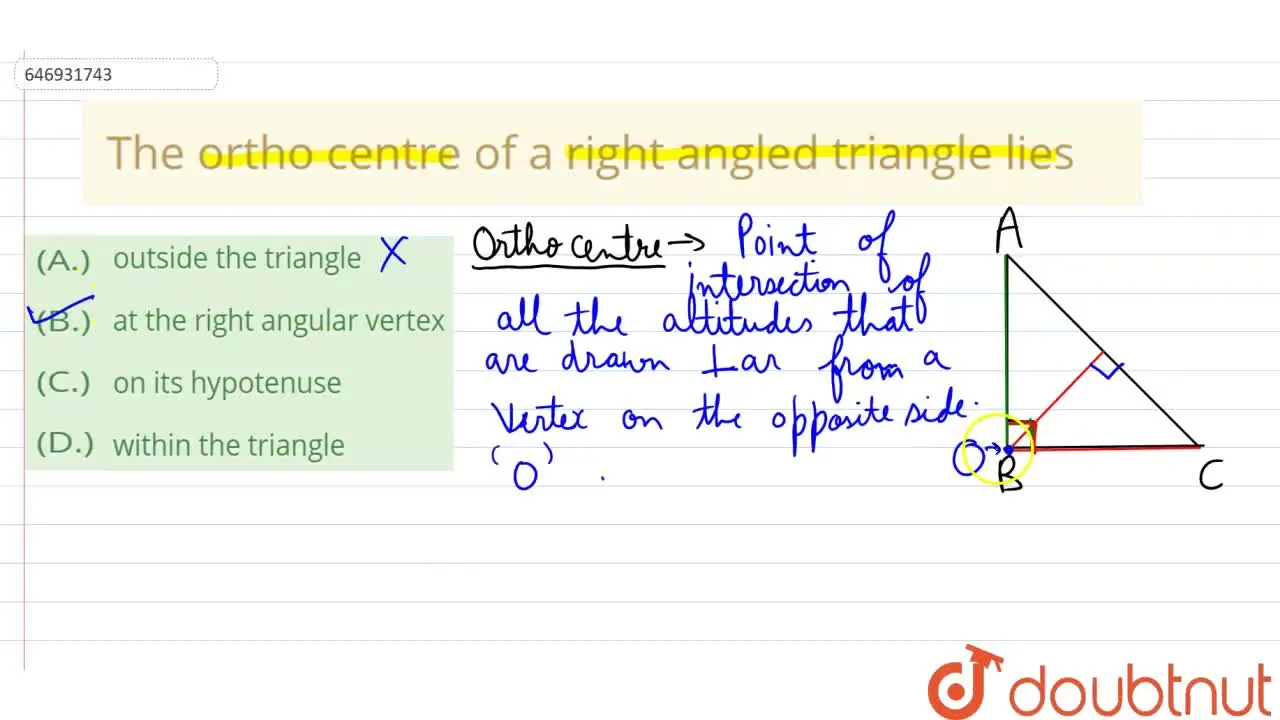 646931743
The ortho centre of a right angled triangle lies
(A.) outside the triangle X
(B.) at the right angular vertex
(C.) on its hypotenuse
(D.) within the triangle
Ortho centre → Point of
intersection of
all the altitudes that
are drawn ⊥ar from a
vertex on the opposite side.
(O)
A
O→
B
C
doubtnut